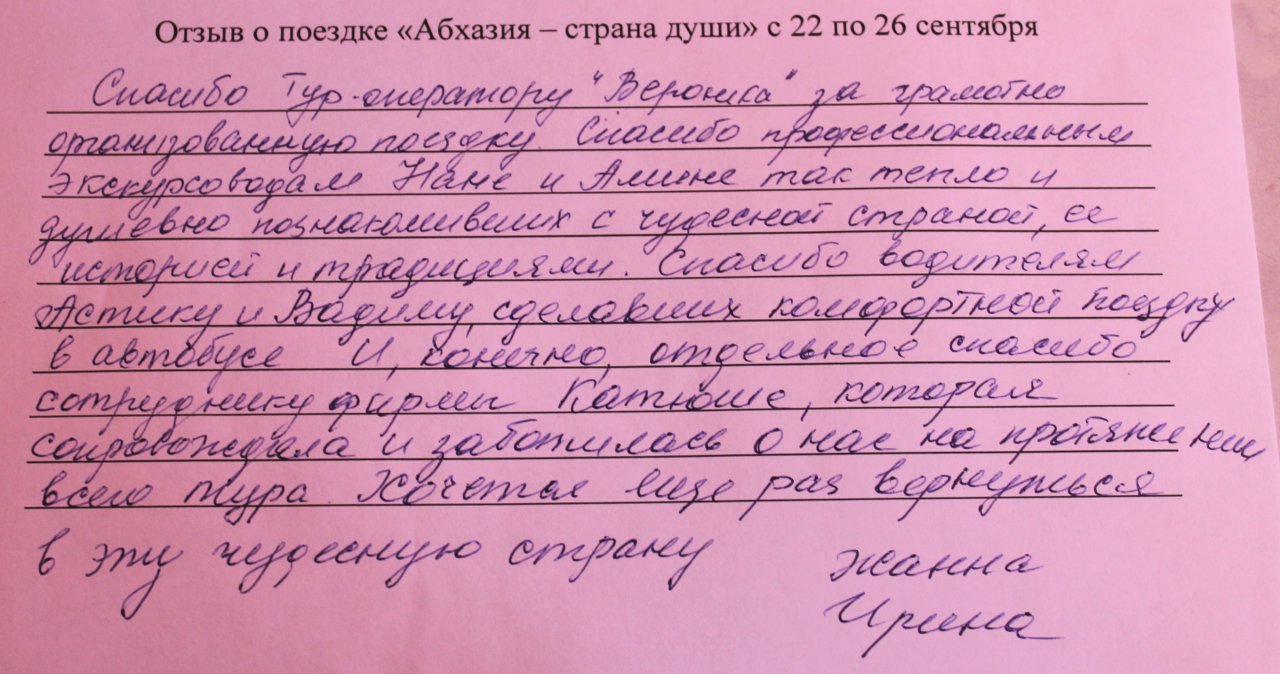 Отзыв о поездке «Абхазия – страна души» с 22 по 26 сентября
Спасибо Тур-оператору "Вероника" за грамотно
организованную поездку. Спасибо профессиональным
экскурсоводам Нане и Амине так тепло и
душевно познакомивших с чудесной страной, ее
историей и традициями. Спасибо водителям
Астику и Вадиму, сделавших комфортной поездку
в автобусе И, конечно, отдельное спасибо
сотруднику фирмы Катюше, которая
сопровождала и заботилась о нас на протяжении
всего тура. Хочется еще раз вернуться
в эту чудесную страну
Жанна
Ирина